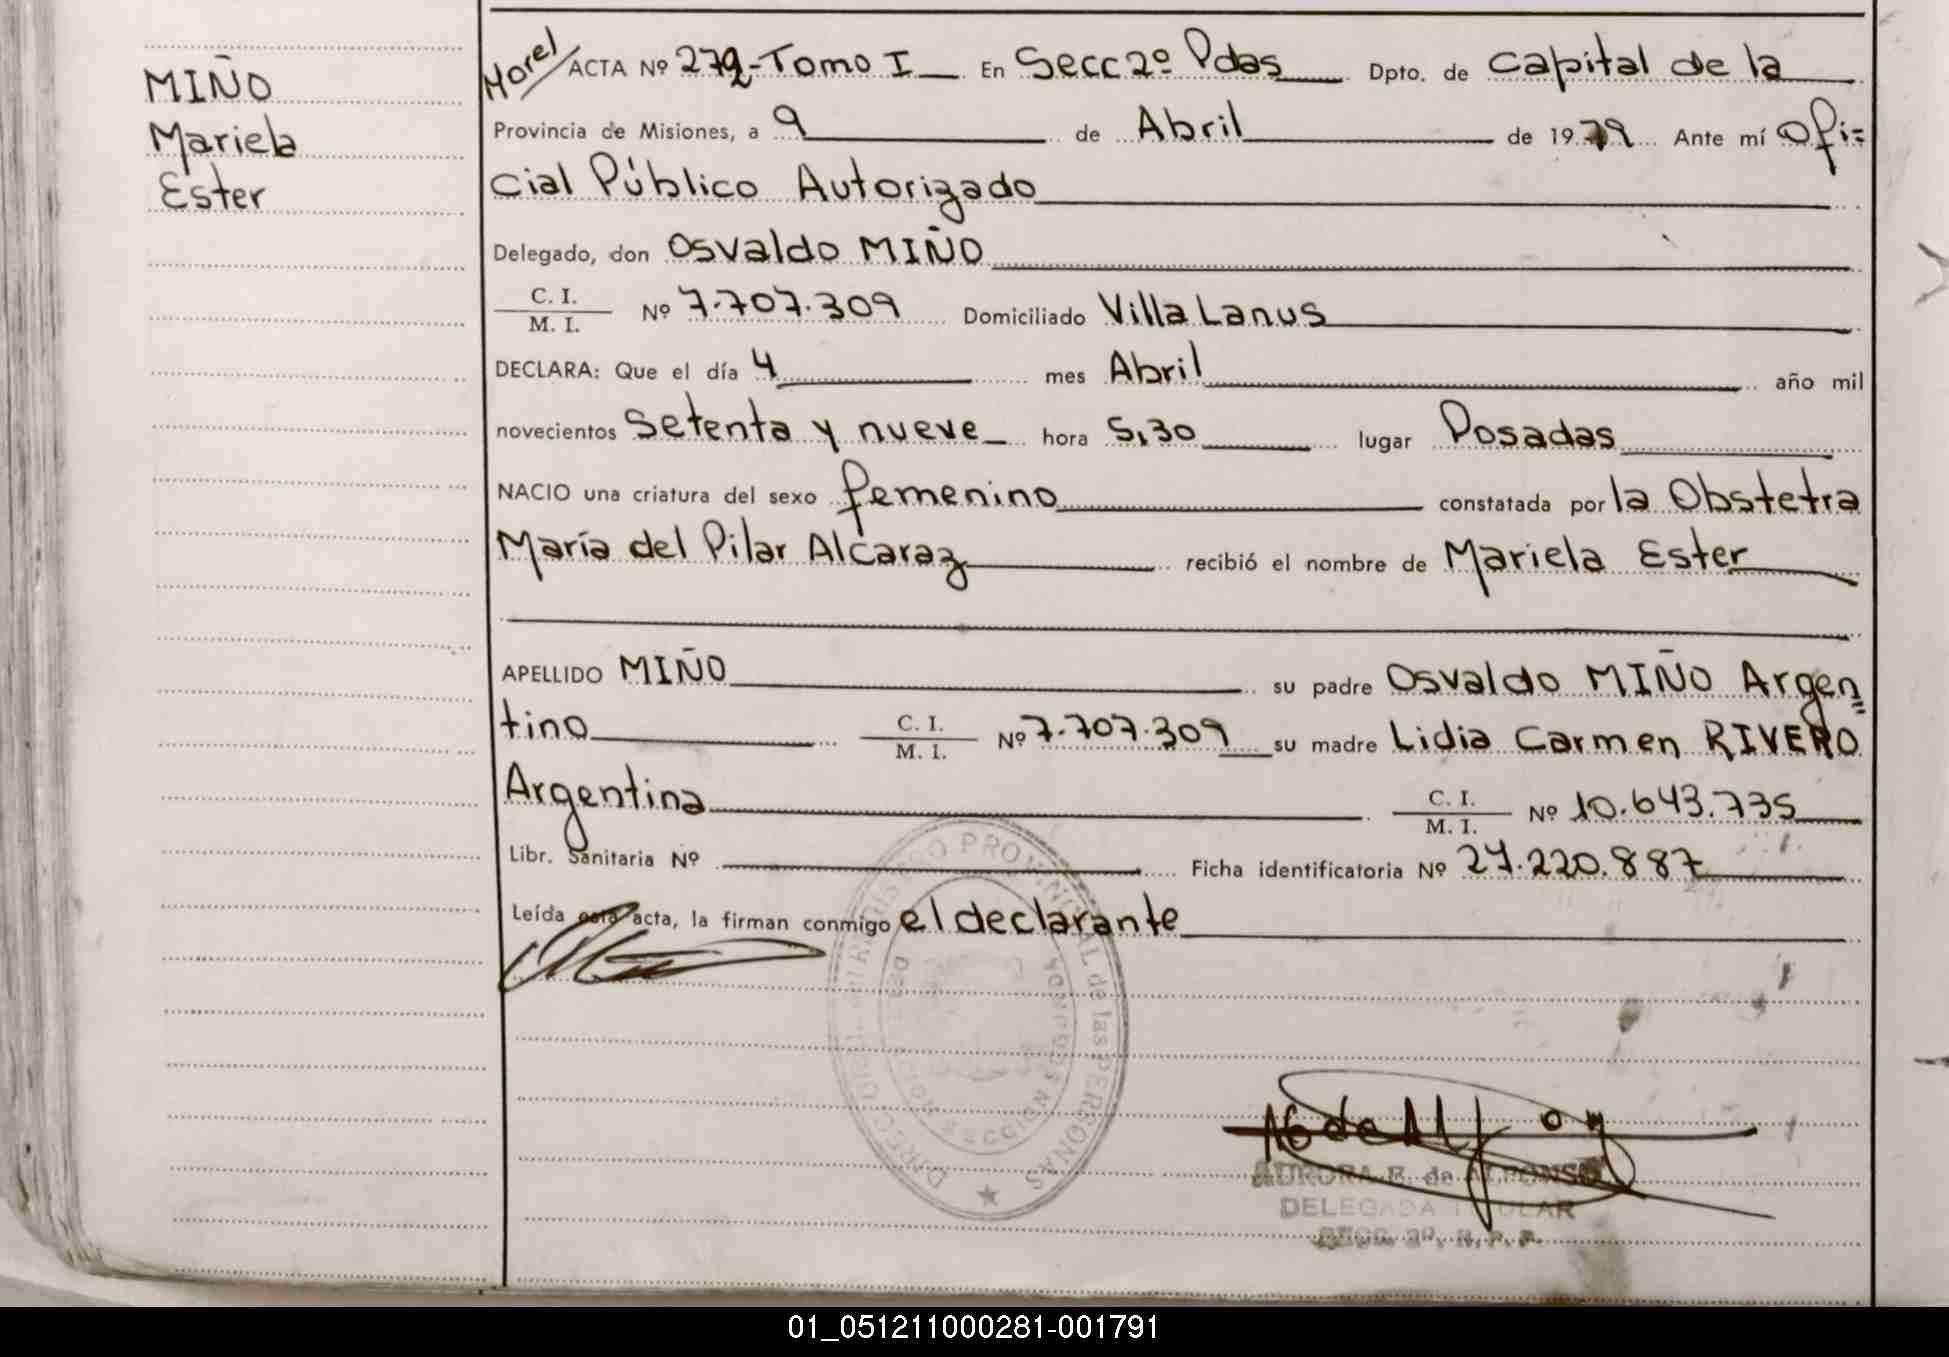 MIÑO
Mariela
Ester
Morel ACTA Nº 279-Tomo I En Secc 2º Pdas Dpto. de Capital de la
Provincia de Misiones, a 9 de Abril de 1979 Ante mí Ofi=
cial Público Autorizado
Delegado, don Osvaldo MIÑO
C. I.
M. I. Nº 7.707.309 Domiciliado Villa Lanus
DECLARA: Que el día 4 mes Abril año mil
novecientos Setenta y nueve hora 5,30 lugar Posadas
NACIO una criatura del sexo femenino constatada por la Obstetra
María del Pilar Alcaraz recibió el nombre de Mariela Ester
APELLIDO MIÑO su padre Osvaldo MIÑO Argen=
tino C. I.
M. I. Nº 7.707.309 su madre Lidia Carmen RIVERO
Argentina C. I.
M. I. Nº 10.643.735
Libr. Sanitaria Nº Ficha identificatoria Nº 27.220.887
Leída esta acta, la firman conmigo el declarante
REGISTRO PROVINCIAL de las PERSONAS
AURORA E. de ALFONSO
DELEGADA TITULAR
SECC. 2º. R. P. P.
01_051211000281-001791